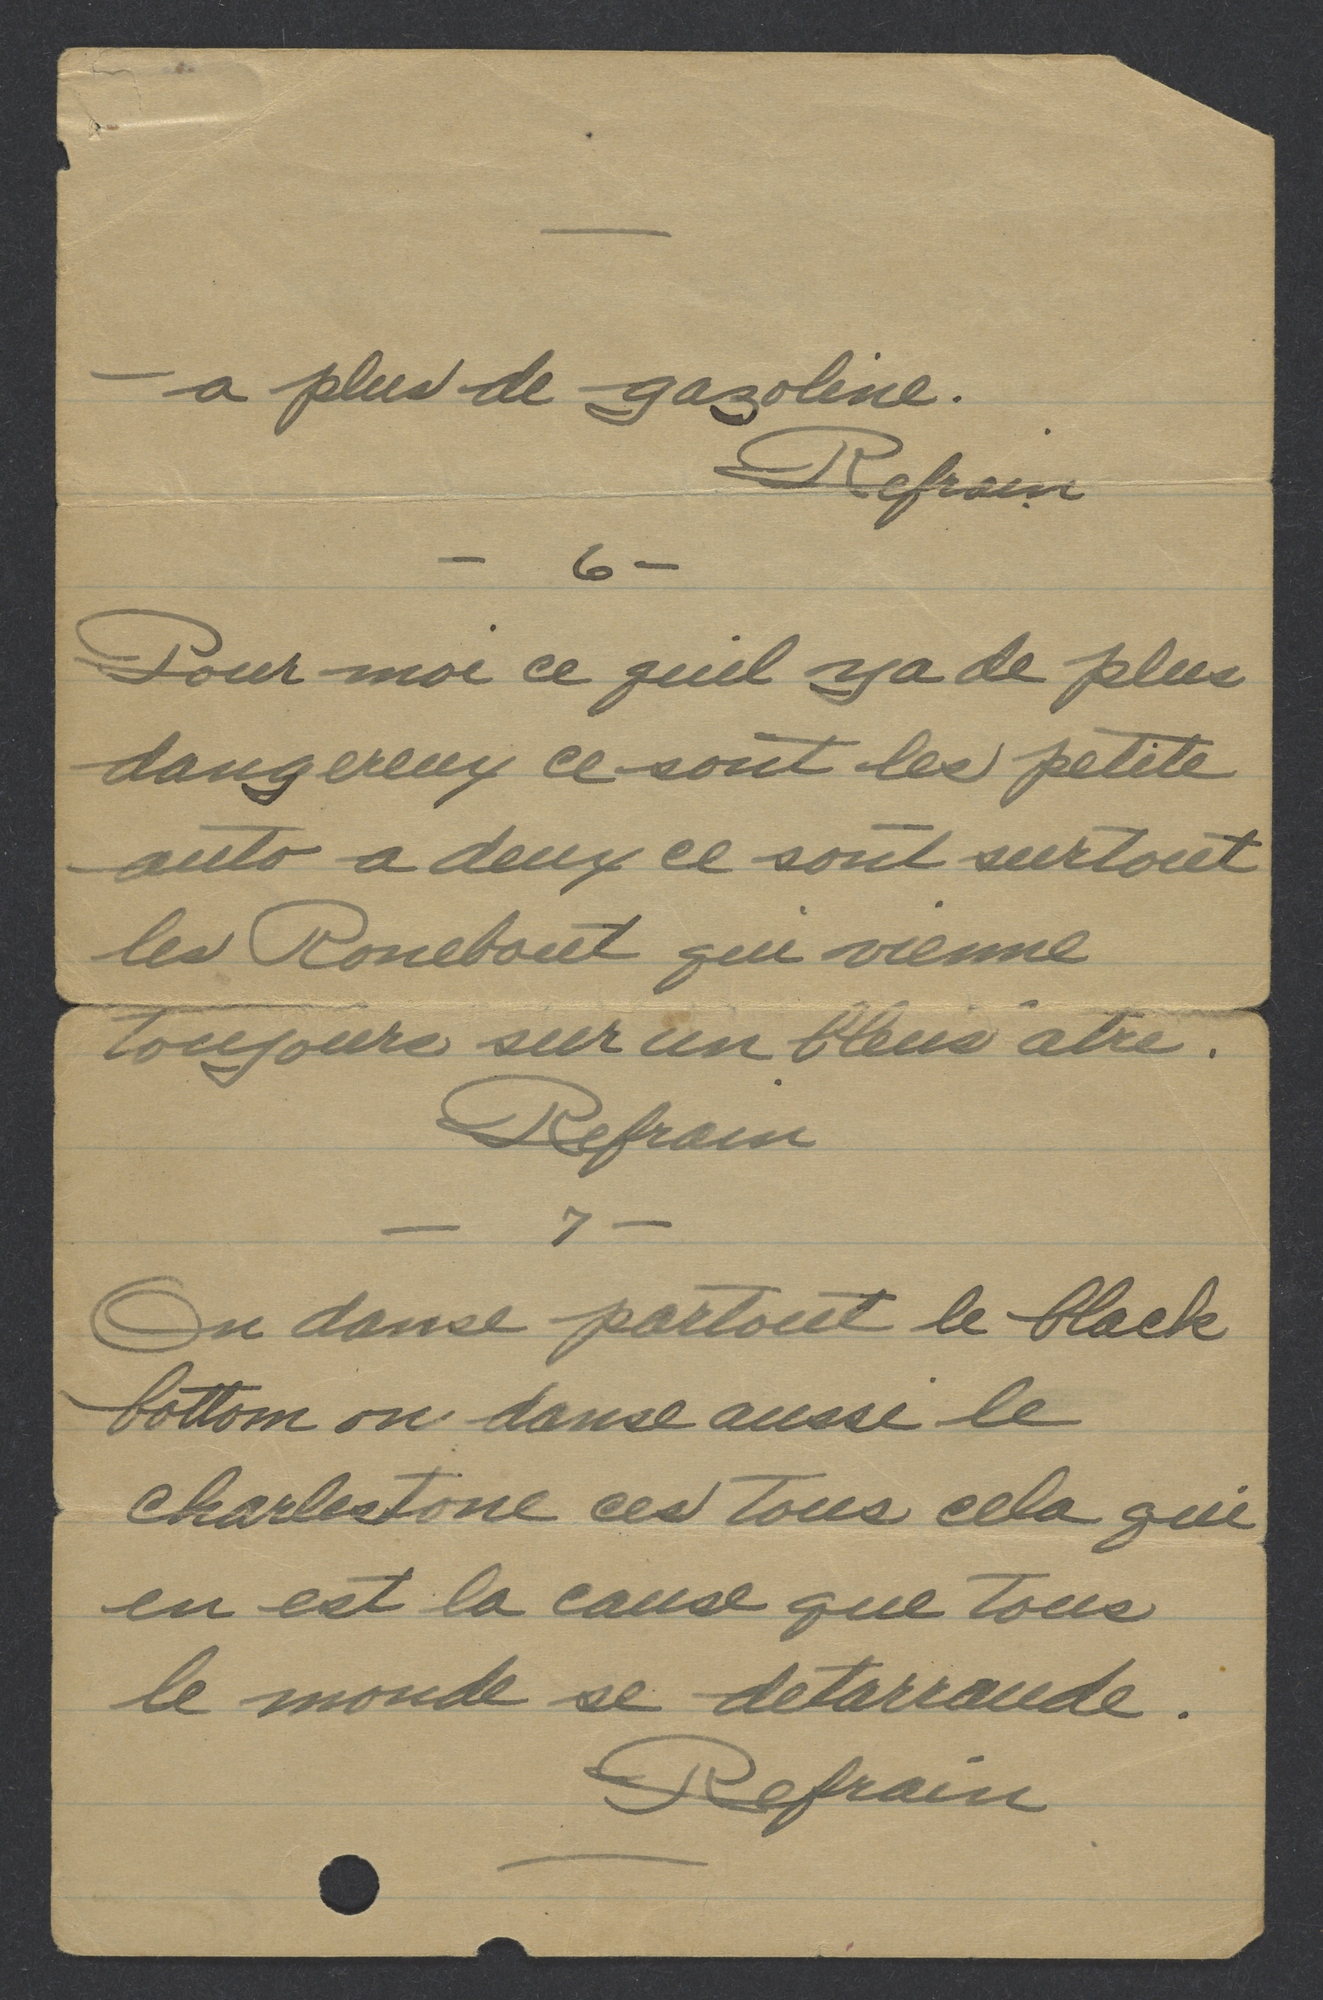 — a plus de gazoline.
Refrain
- 6 -
Pour moi ce quil ya de plus
dangereux ce sont les petite
auto a deux ce sont surtout
les Ronebout qui vienne
toujours sur un bleus atre.
Refrain
- 7 -
On danse partout le black
bottom on danse aussi le
charlestone ces tous cela qui
en est la cause que tous
le monde se detarraude.
Refrain